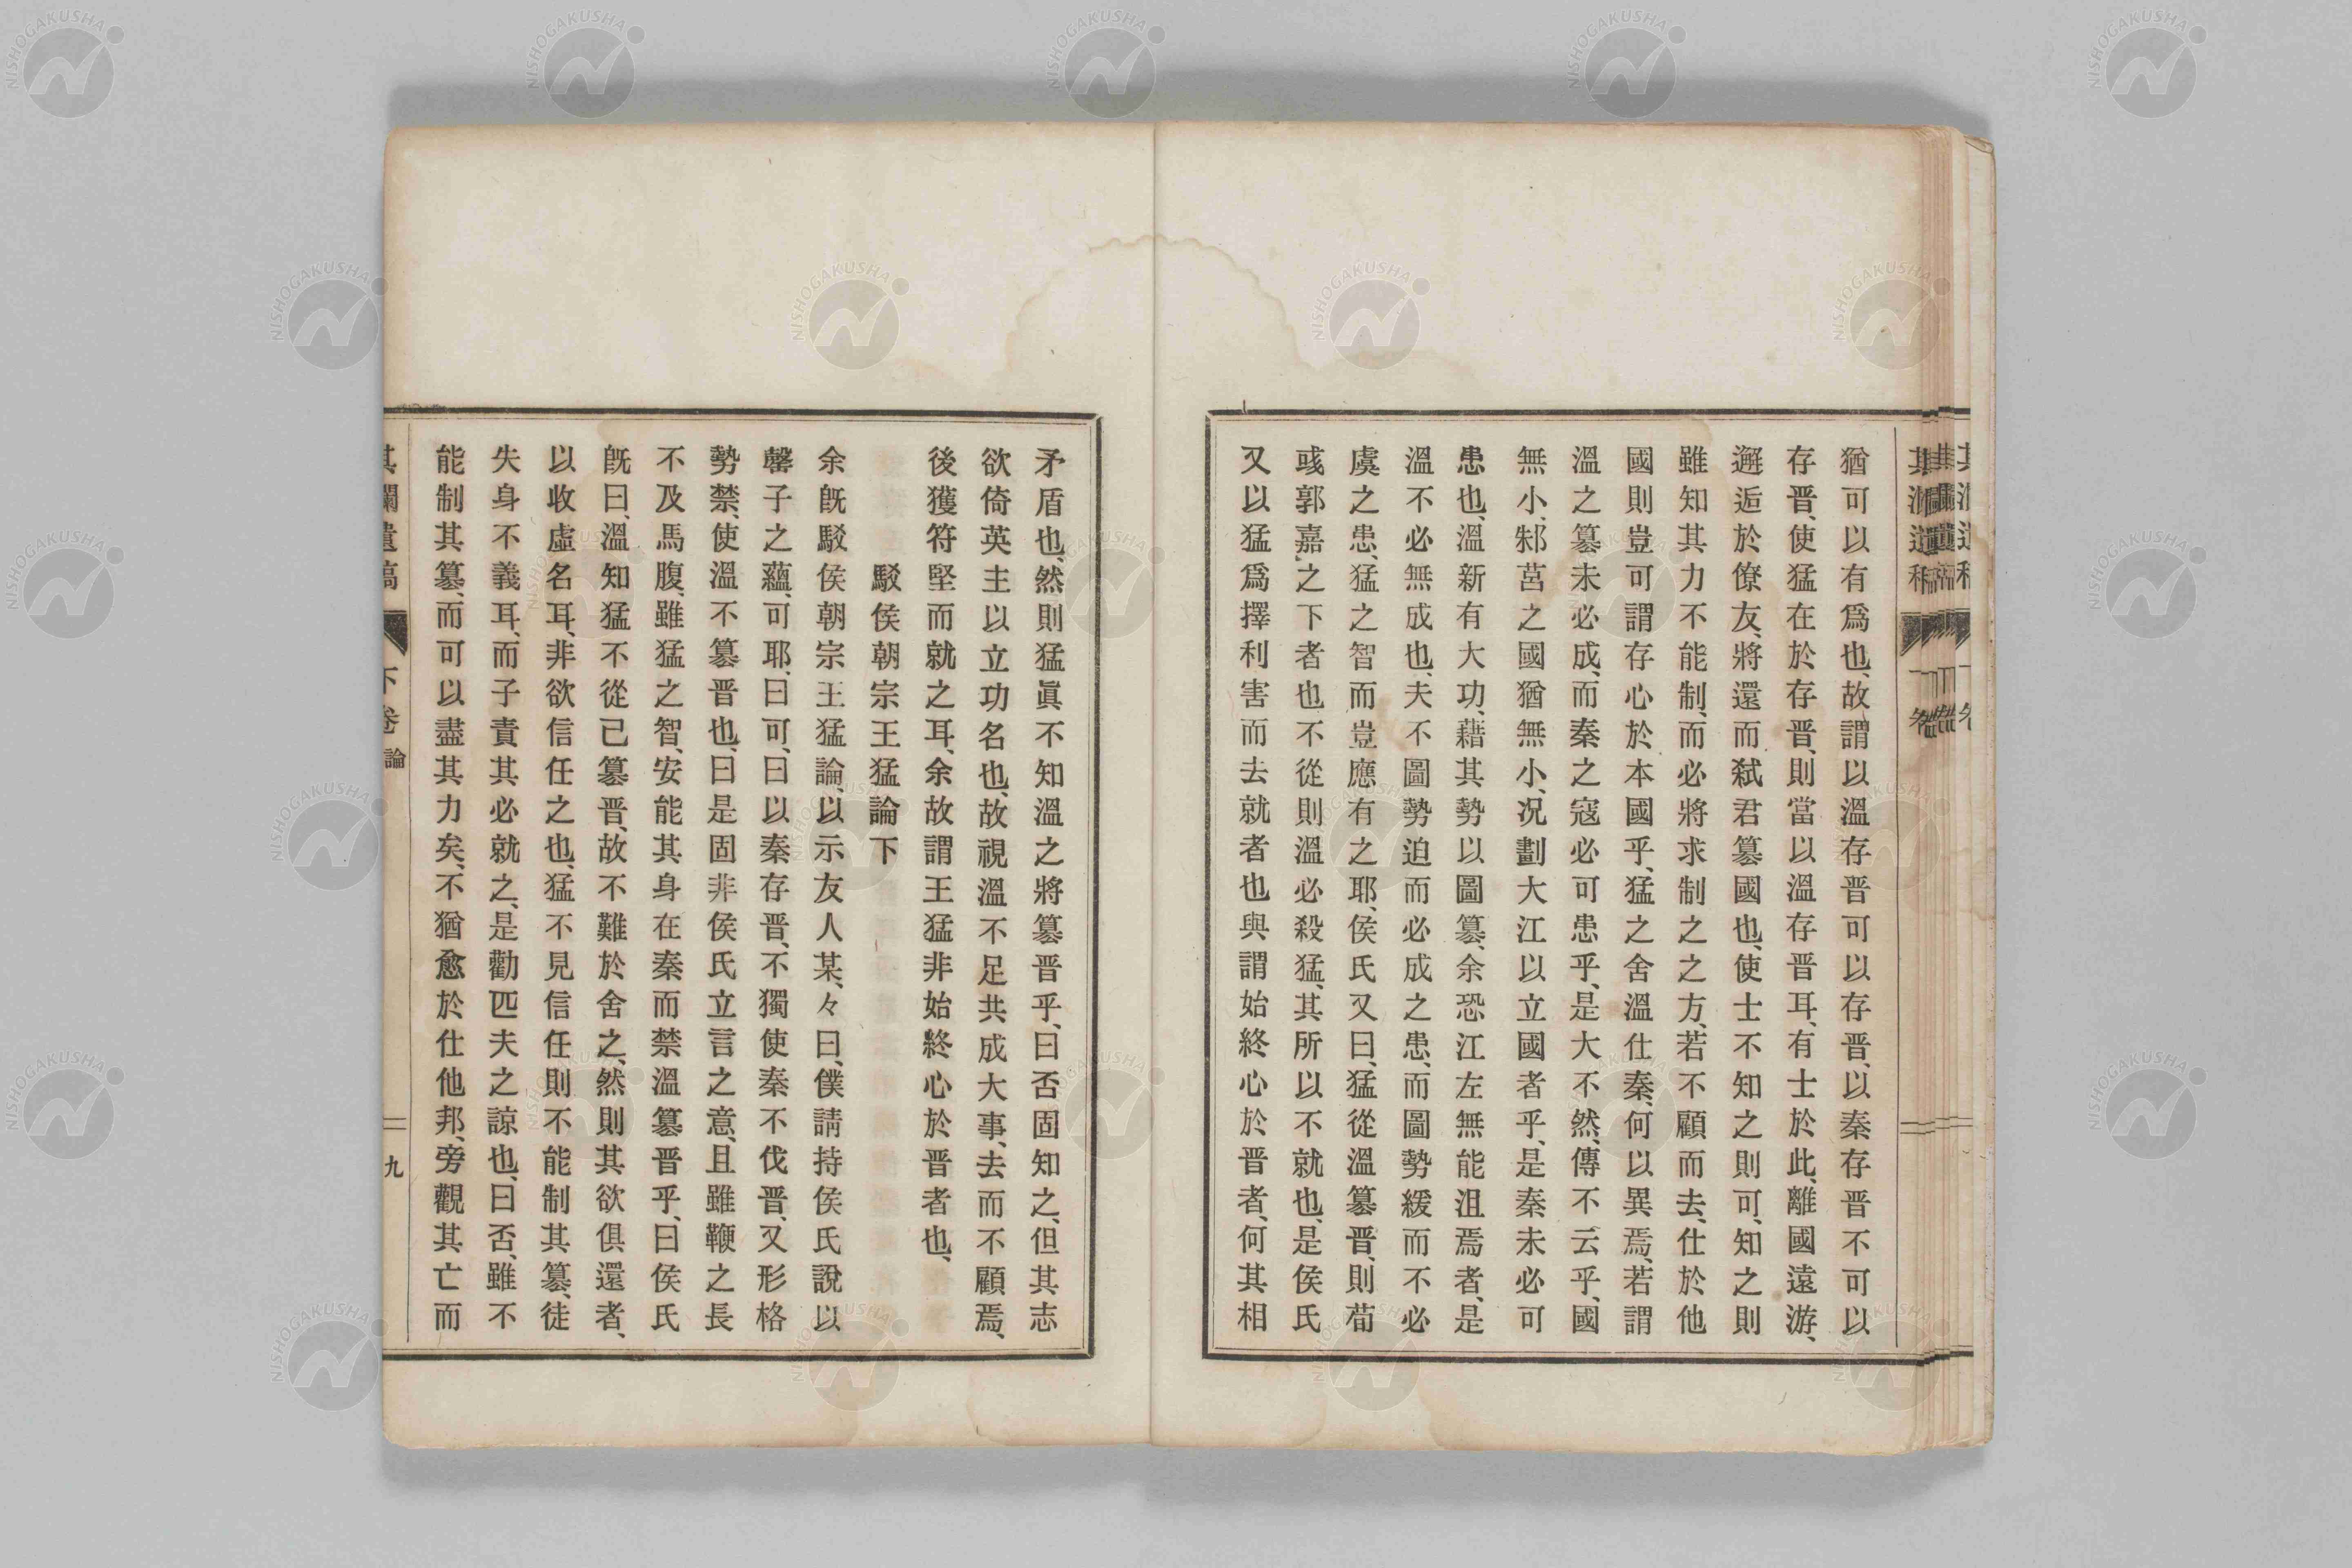 猶可以有爲也、故謂以溫存晋可以存晋、以秦存晋不可以
存晋、使猛在於存晋、則當以溫存晋耳、有士於此、離國遠游、
邂逅於僚友、將還而弑君簒國也、使士不知之則可、知之則
雖知其力不能制、而必將求制之之方、若不顧而去、仕於他
國則豈可謂存心於本國乎、猛之舍溫仕秦、何以異焉、若謂
溫之簒未必成、而秦之寇必可患乎、是大不然、傳不云乎、國
無小、邾莒之國猶無小、况劃大江以立國者乎、是秦未必可
患也、溫新有大功、藉其勢以圖簒、余恐江左無能沮焉者、是
溫不必無成也、夫不圖勢迫而必成之患、而圖勢緩而不必
虞之患、猛之智而豈應有之耶、侯氏又曰、猛從溫簒晋、則荀
彧郭嘉之下者也、不從則溫必殺猛、其所以不就也、是侯氏
又以猛爲擇利害而去就者也、與謂始終心於晋者、何其相
矛盾也、然則猛眞不知溫之將簒晋乎、曰否固知之、但其志
欲倚英主以立功名也、故視溫不足共成大事、去而不顧焉、
後獲符堅而就之耳、余故謂王猛非始終心於晋者也、
駁侯朝宗王猛論下
余既駁侯朝宗王猛論、以示友人某、々曰、僕請持侯氏說以
罄子之蘊、可耶、曰可、曰以秦存晋、不獨使秦不伐晋、又形格
勢禁、使溫不簒晋也、曰是固非侯氏立言之意、且雖鞭之長
不及馬腹、雖猛之智、安能其身在秦而禁溫簒晋乎、曰侯氏
既曰、溫知猛不從己簒晋、故不難於舍之、然則其欲俱還者、
以收虛名耳、非欲信任之也、猛不見信任則不能制其簒、徒
失身不義耳、而子責其必就之、是勸匹夫之諒也、曰否、雖不
能制其簒、而可以盡其力矣、不猶愈於仕他邦、旁觀其亡而
遺稿 下卷 論 九